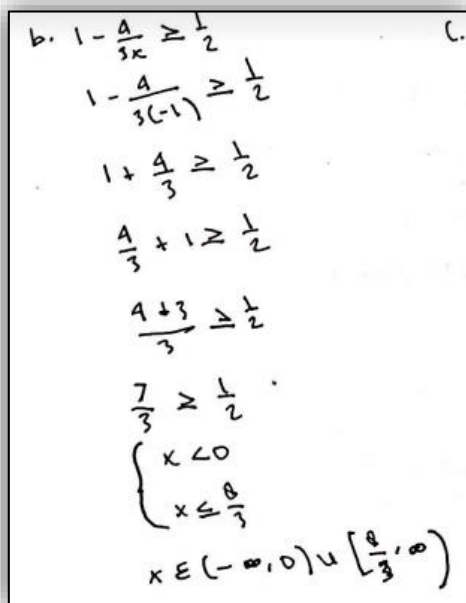 b. 1 - 4/3x ≥ 1/2
c.
1 - 4/3(-1) ≥ 1/2
1 + 4/3 ≥ 1/2
4/3 + 1 ≥ 1/2
4+3/3 ≥ 1/2
7/3 ≥ 1/2 .
{ x < 0
x ≤ 8/3
x ∈ (-∞, 0) ∪ [8/3, ∞)